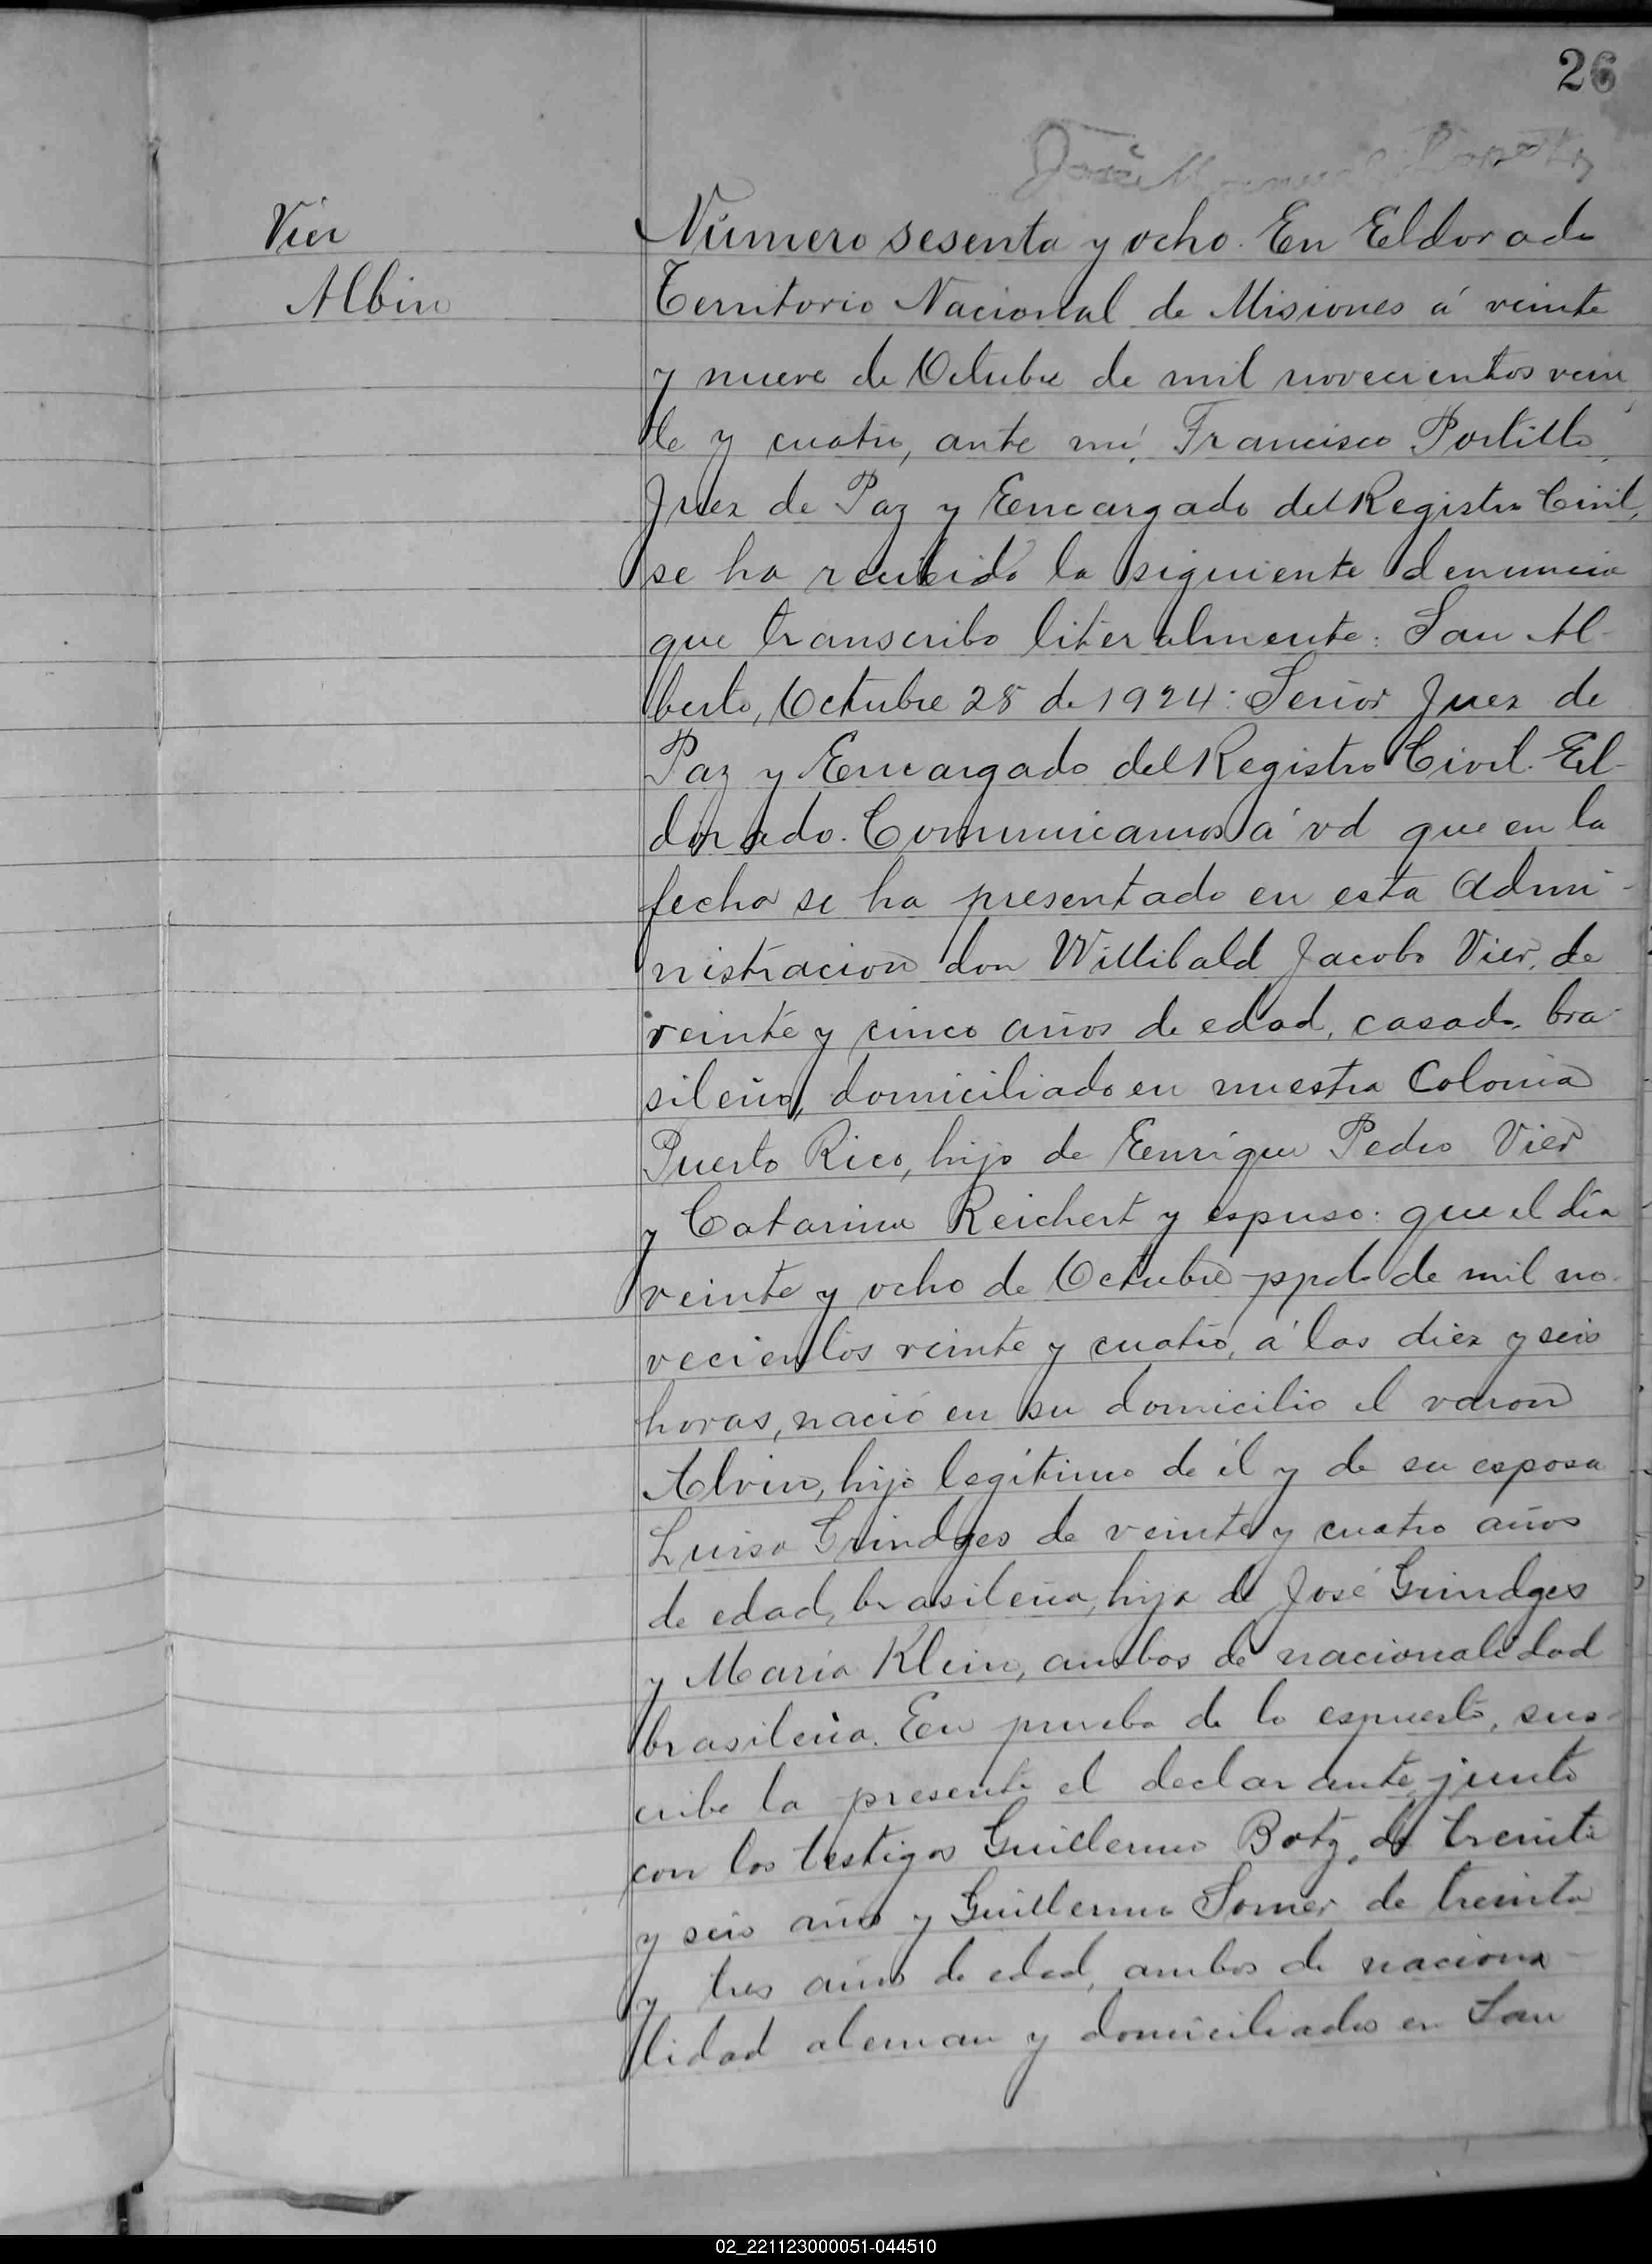 26
José Manuel
Vier
Albino
Número sesenta y ocho. En Eldorado
Territorio Nacional de Misiones á veinte
y nueve de Octubre de mil novecientos vein
te y cuatro, ante mí, Francisco Portillo,
Juez de Paz y Encargado del Registro Civil,
se ha recibido la siguiente denuncia
que transcribo literalmente: San Al-
berto, Octubre 28 de 1924: Señor Juez de
Paz y Encargado del Registro Civil. El-
dorado. Comunicamos á vd que en la
fecha se ha presentado en esta Admi-
nistracion don Willibald Jacobo Vier, de
veinte y cinco años de edad, casado, bra-
sileño, domiciliado en nuestra Colonia
Puerto Rico, hijo de Enrique Pedro Vier
y Catarina Reichert y espuso: que el día
veinte y ocho de Octubre ppdo de mil no-
vecientos veinte y cuatro, á las diez y seis
horas, nació en su domicilio el varon
Alvino, hijo legítimo de él y de su esposa
Luisa Grindges de veinte y cuatro años
de edad, brasileña, hija de José Grindges
y María Klein, ambos de nacionalidad
brasileña. En prueba de lo espuesto, sus-
cribe la presente el declarante, junto
con los testigos Guillermo Botz, de treinta
y seis años y Guillermo Somer de treinta
y tres años de edad, ambos de naciona-
lidad aleman y domiciliados en San
02_221123000051-044510